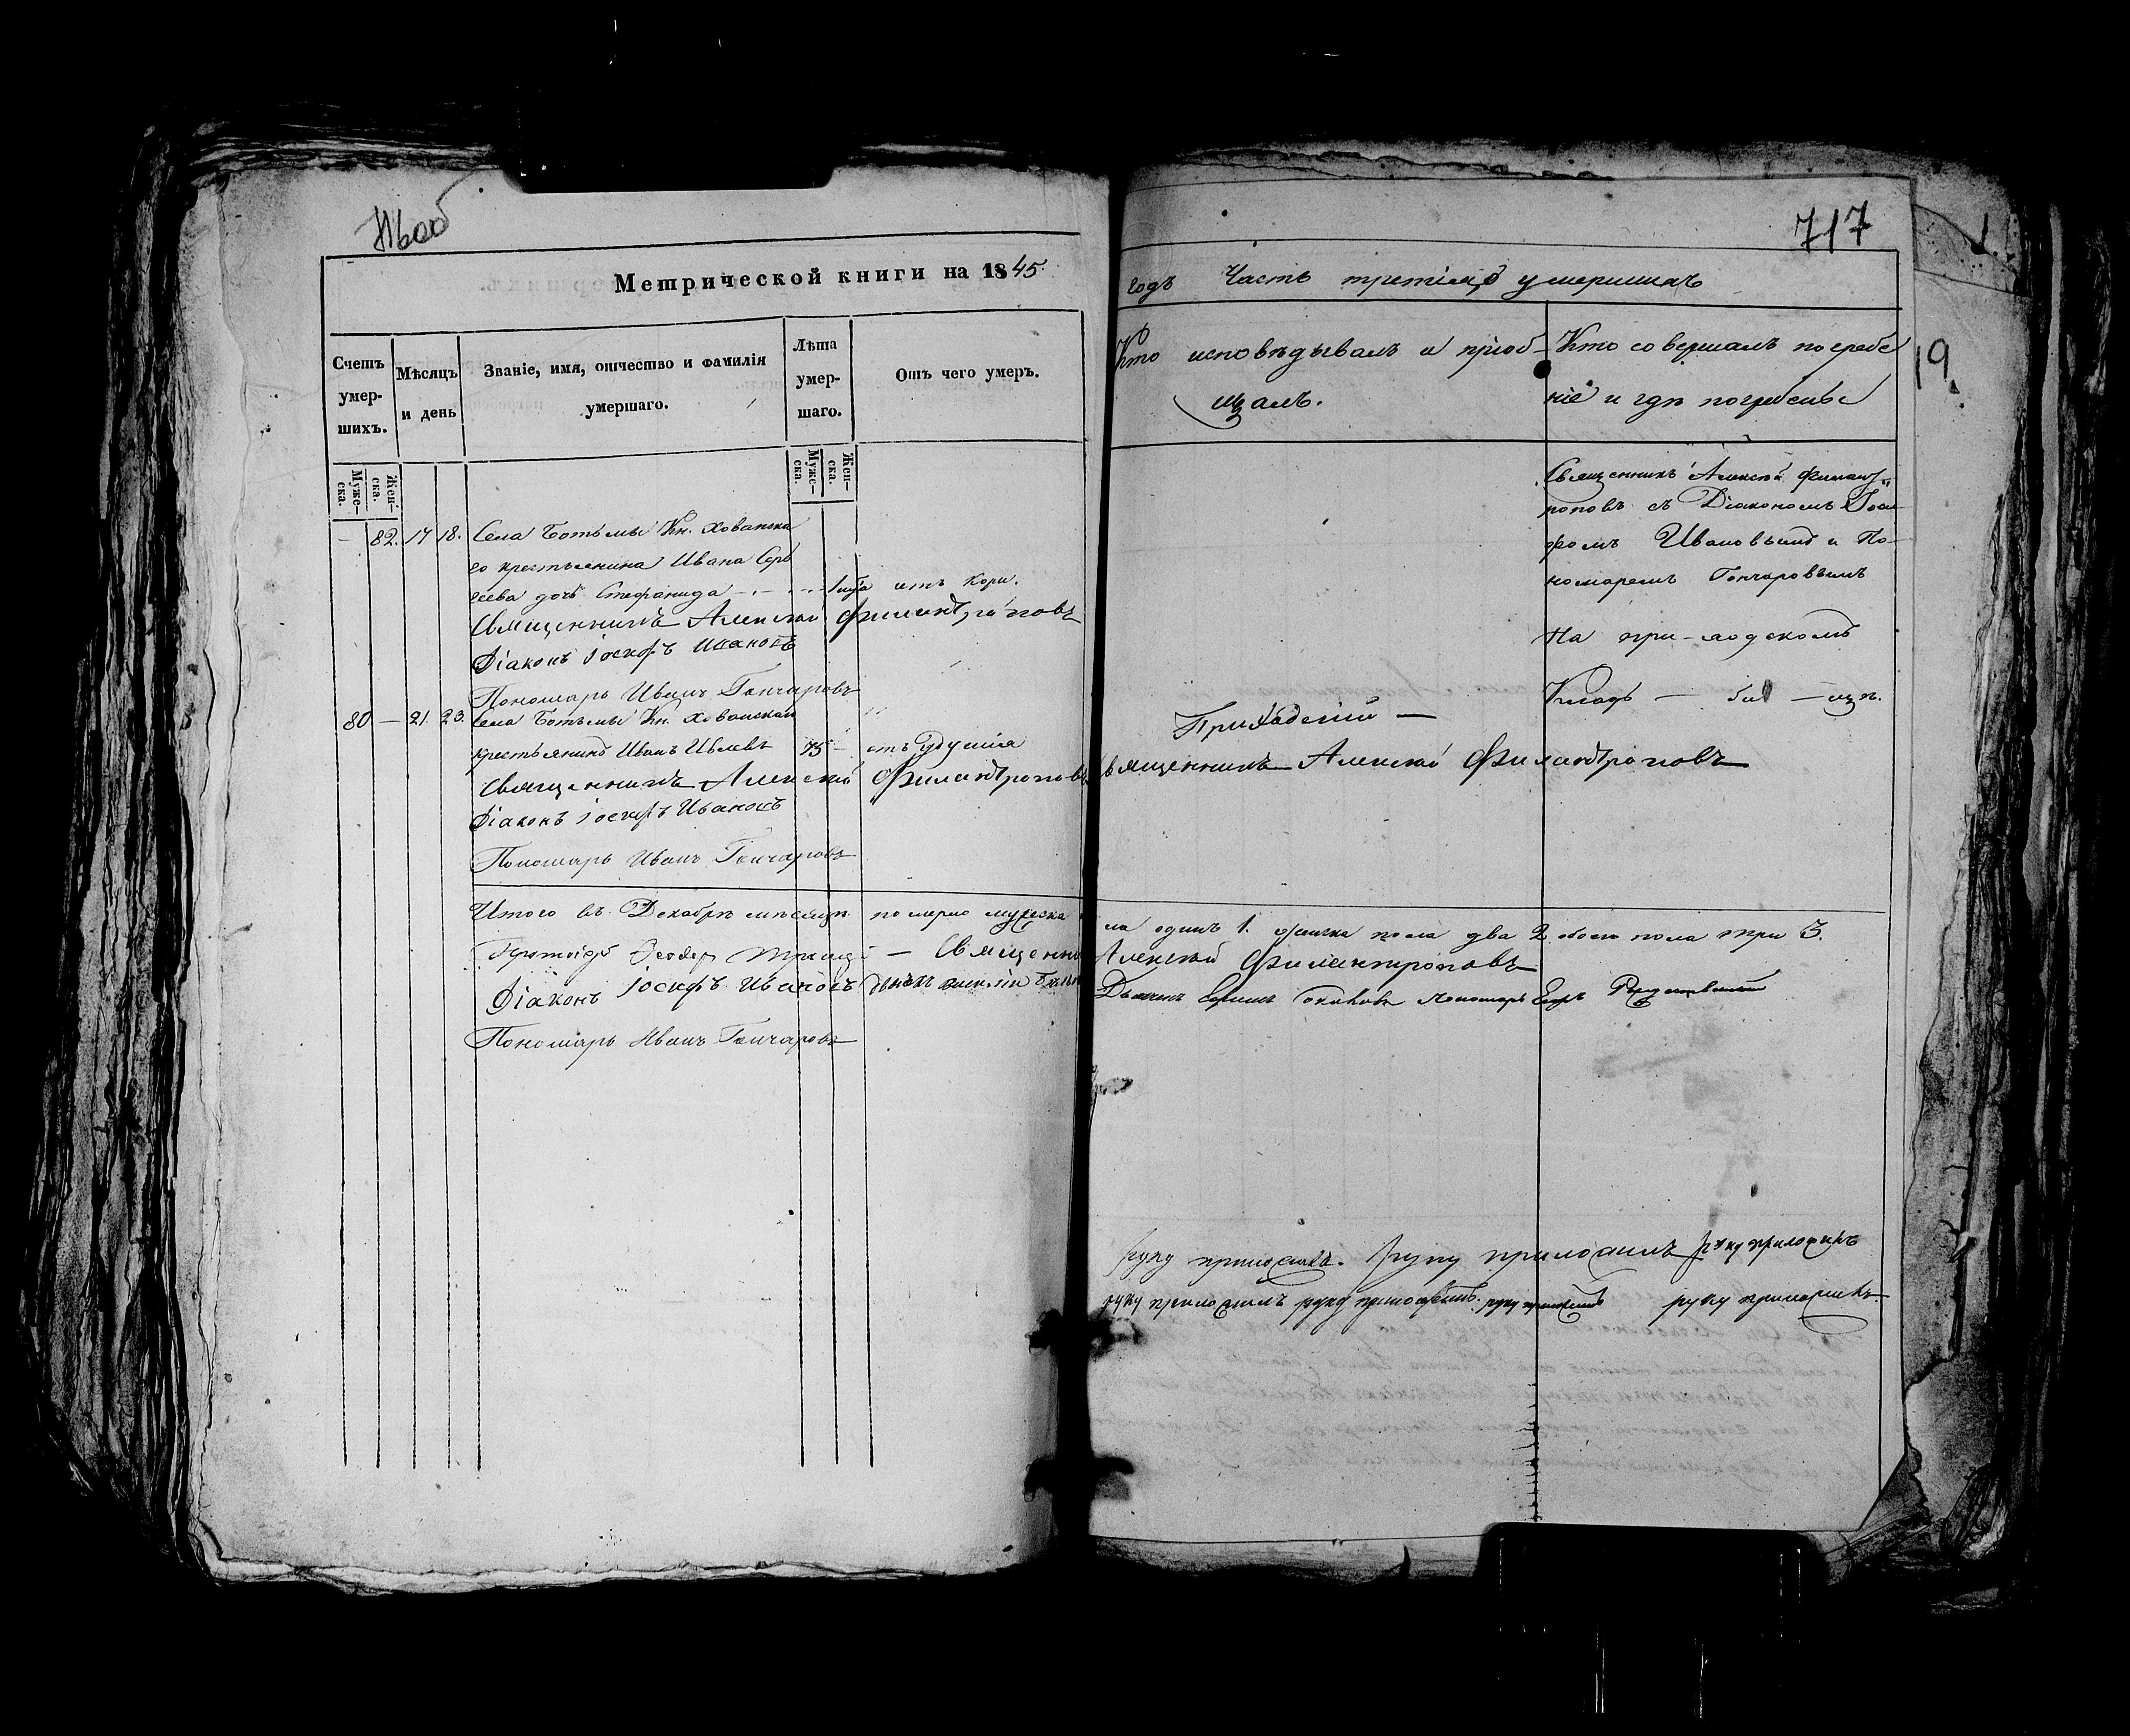 717
Метрической книги на 1845.
годъ Часть третія, о умершихъ
Счетъ умер-шихъ.
Мѣсяцъ и день
Званіе, имя, отчество и фамилія умершаго.
Лѣта умер-шаго.
Отъ чего умеръ.
Кто исповѣдывалъ и пріоб-
щалъ.
Кто совершалъ погребе
ніе и гдѣ погребены
Муже-ска.
Жен-ска.
Муже-ска.
Жен-ска.
19.
— 82. 17 18. Села Ботьмы Кн. Хованска
го крестьянина Ивана Сер
геева дочь Стефанида 1 отъ кори.
Священникъ Алексѣй Филантроповъ
Діаконъ Іосифъ Ивановъ
Пономарь Иванъ Гончаровъ
Священникъ Алексѣй Филант
роповъ съ Діакономъ Іоси
фомъ Ивановымъ и По-
номаремъ Гончаровымъ
На при-ходскомъ
Кладъ — би — щѣ.
80 — 21. 23. Села Ботьмы Кн. Хованскаго
крестьянинъ Иванъ 75 — отъ удушія
Священникъ Алексѣй Филантроповъ
Діаконъ Іосифъ Ивановъ
Пономарь Иванъ Гончаровъ
Приходскій —
Священникъ Алексѣй Филантроповъ
Итого въ Декабрѣ мѣсяцѣ померло мужеска по
ла одинъ 1. женска пола два 2 обоего пола три 3.
Ѳеодоръ — Священникъ
Алексѣй Филантроповъ
Діаконъ Іосифъ Ивановъ
Пономарь Егоръ
Пономарь Иванъ Гончаровъ
руку приложилъ. руку приложилъ руку приложилъ
руку приложилъ руку приложилъ. руку приложилъ руку приложилъ.